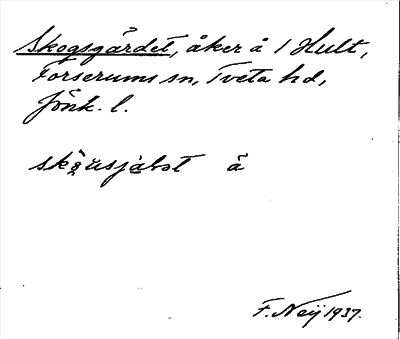 Skogsgärdet, åker å 1 Hult,
Forserums sn, Tveta hd,
Jönk. l.
å
F. Neij 1937.